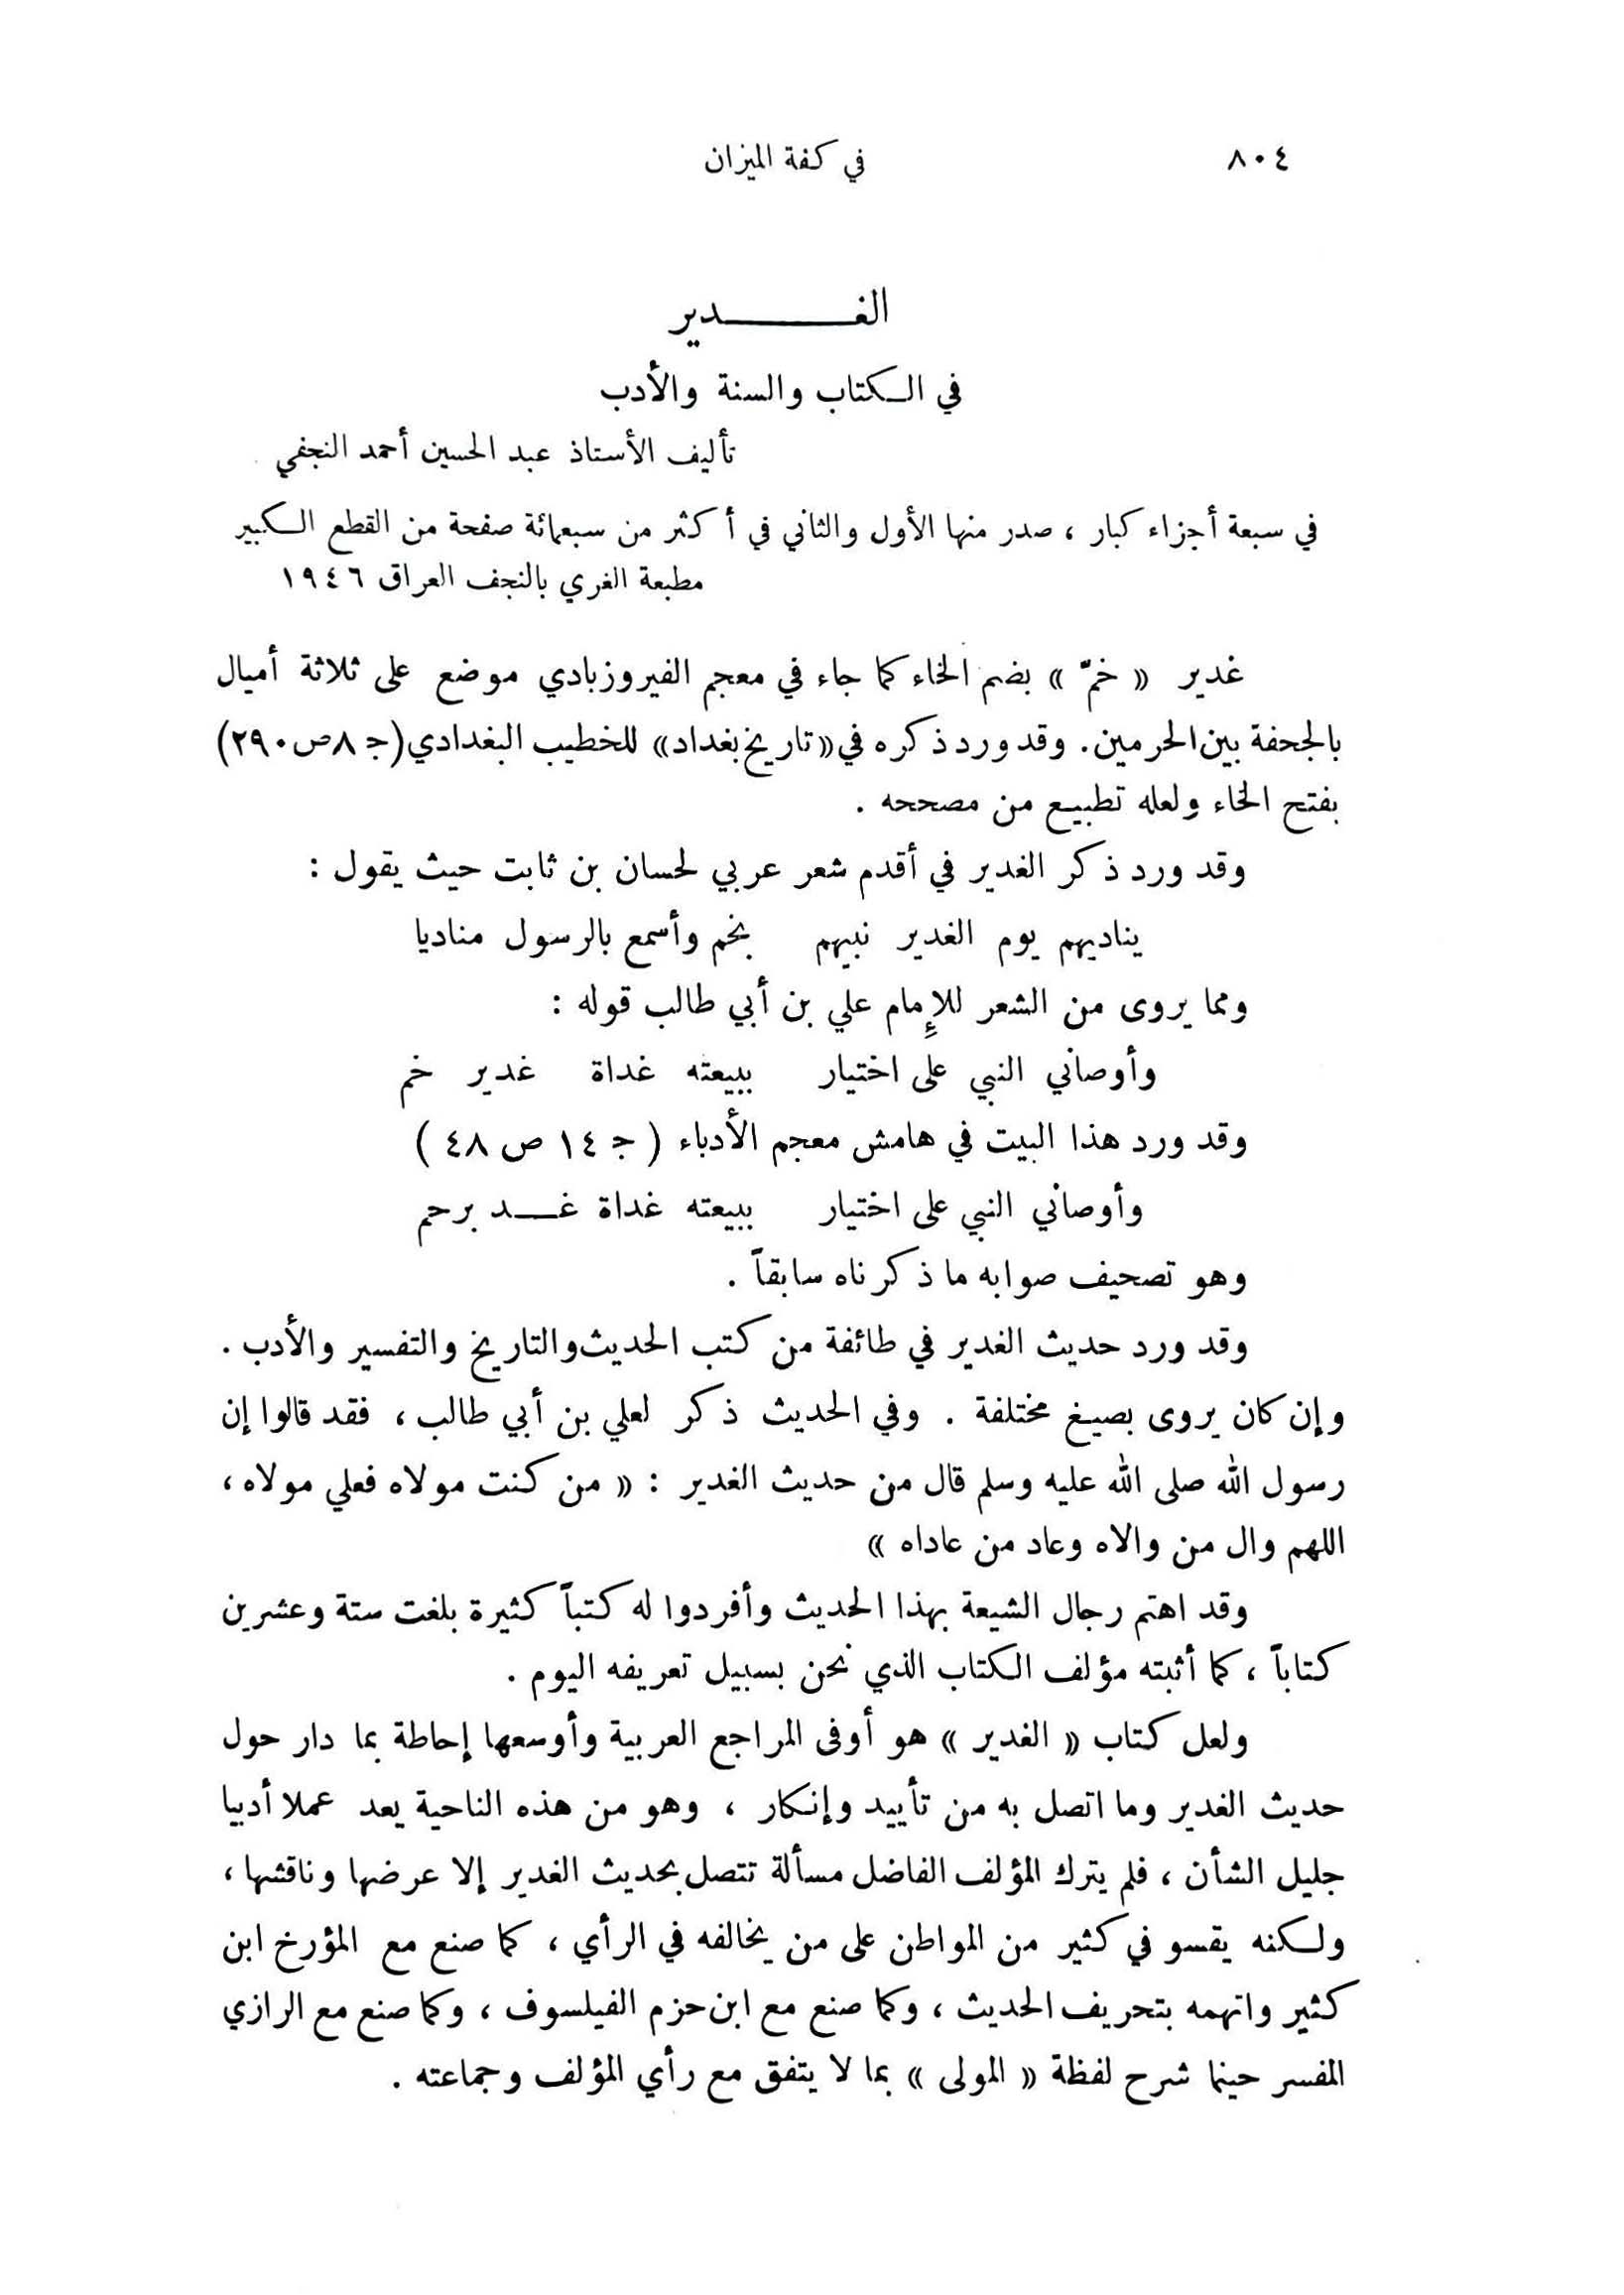 ٨٠٤ في كفة الميزان
الغـــــــدير
في الكتاب والسنة والأدب
تأليف الأستاذ عبد الحسين أحمد النجفي
في سبعة أجزاء كبار ، صدر منها الأول والثاني في أكثر من سبعمائة صفحة من القطع الكبير
مطبعة الغري بالنجف العراق ١٩٤٦
غدير « خمّ » بضم الخاء كما جاء في معجم الفيروزبادي موضع على ثلاثة أميال
بالجحفة بين الحرمين . وقد ورد ذكره في « تاريخ بغداد » للخطيب البغدادي (ج ٨ ص ٢٩٠)
بفتح الخاء ولعله تطبيع من مصححه .
وقد ورد ذكر الغدير في أقدم شعر عربي لحسان بن ثابت حيث يقول :
يناديهم يوم الغدير نبيهم بخم وأسمع بالرسول مناديا
ومما يروى من الشعر للإمام علي بن أبي طالب قوله :
وأوصاني النبي على اختيار ببيعته غداة غدير خم
وقد ورد هذا البيت في هامش معجم الأدباء ( ج ١٤ ص ٤٨ )
وأوصاني النبي على اختيار ببيعته غداة غـــد برحم
وهو تصحيف صوابه ما ذكرناه سابقاً .
وقد ورد حديث الغدير في طائفة من كتب الحديث والتاريخ والتفسير والأدب .
وإن كان يروى بصيغ مختلفة . وفي الحديث ذكر لعلي بن أبي طالب ، فقد قالوا إن
رسول الله صلى الله عليه وسلم قال من حديث الغدير : « من كنت مولاه فعلي مولاه ،
اللهم وال من والاه وعاد من عاداه »
وقد اهتم رجال الشيعة بهذا الحديث وأفردوا له كتباً كثيرة بلغت ستة وعشرين
كتاباً ، كما أثبته مؤلف الكتاب الذي نحن بسبيل تعريفه اليوم .
ولعل كتاب « الغدير » هو أوفى المراجع العربية وأوسعها إحاطة بما دار حول
حديث الغدير وما اتصل به من تأييد وإنكار ، وهو من هذه الناحية يعد عملا أدبيا
جليل الشأن ، فلم يترك المؤلف الفاضل مسألة تتصل بحديث الغدير إلا عرضها وناقشها ،
ولكنه يقسو في كثير من المواطن على من يخالفه في الرأي ، كما صنع مع المؤرخ ابن
كثير واتهمه بتحريف الحديث ، وكما صنع مع ابن حزم الفيلسوف ، وكما صنع مع الرازي
المفسر حينما شرح لفظة « المولى » بما لا يتفق مع رأي المؤلف وجماعته .